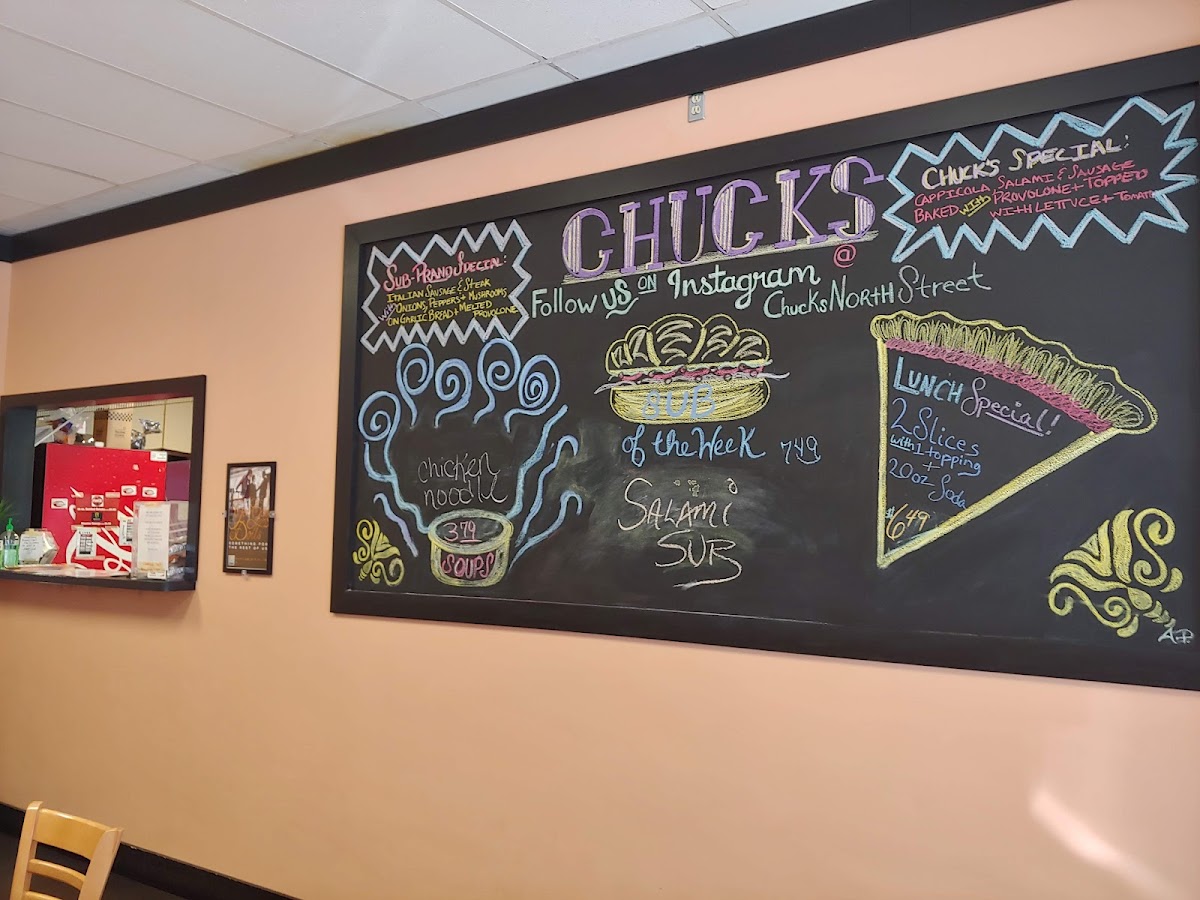 CHUCKS
Follow us on Instagram
@
ChucksNorthStreet
Sub-Prano Special:
Italian Sausage & Steak
with Onions, Peppers + Mushrooms
on Garlic Bread + Melted
Provolone
Chuck's Special:
Cappicola, Salami & Sausage
Baked with Provolone + Topped
with Lettuce + Tomato
chicken
noodle
3.79
SOUPS
SUB
of the Week 7.49
Salami
Sub
Lunch Special!
2 Slices
with 1 topping
+
20oz Soda
$6.49
A.P.
SOMETHING FOR
THE REST OF US